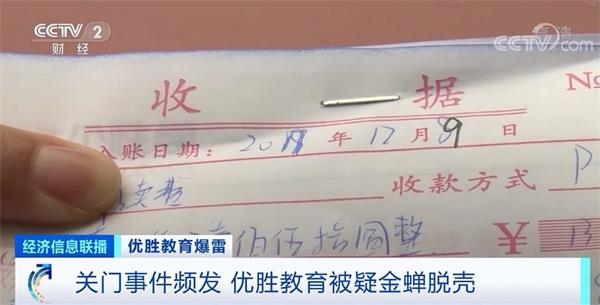 CCTV 2
财经
CCTV.com
收 据 No
入账日期: 年 12 月 9 日
收款方式 P
佰伍拾圆整 ¥ 13
经济信息联播 优胜教育爆雷
关门事件频发 优胜教育被疑金蝉脱壳